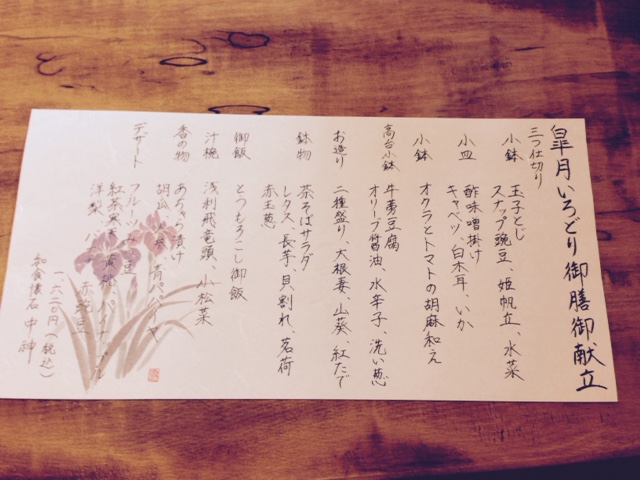 皐月いろどり御膳御献立
三つ仕切り
小鉢 玉子とじ
スナップ豌豆、姫帆立、水菜
小皿 酢味噌掛け
キャベツ、白木耳、いか
小鉢 オクラとトマトの胡麻和え
高台小鉢 牛蒡豆腐
オリーブ醤油、水辛子、洗い葱
お造り 二種盛り、大根妻、山葵、紅たで
鉢物 茶そばサラダ
レタス、長芋、貝割れ、茗荷
赤玉葱
御飯 とうもろこし御飯
汁椀 浅利飛竜頭、小松菜
香の物 あちゃら漬け
胡瓜、青パパイヤ
デザート フルーツ
紅茶寒天、パイナップル
洋梨、赤豌豆
一六二〇円(税込)
和食懐石 中神